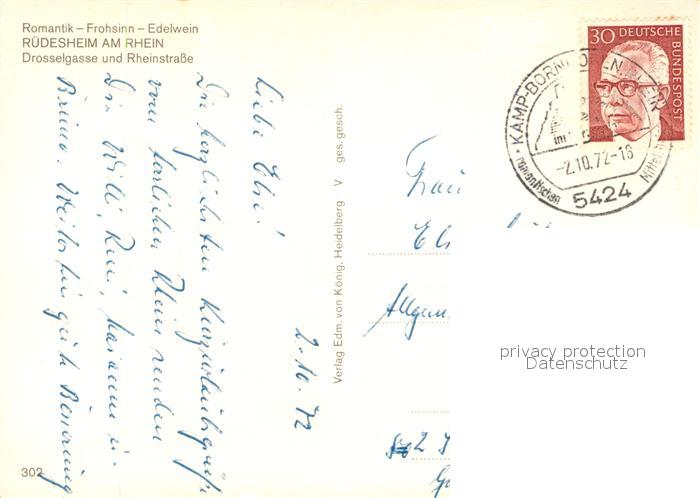 Romantik – Frohsinn – Edelwein
RÜDESHEIM AM RHEIN
Drosselgasse und Rheinstraße
2.10.72
Liebe Elsi!
Die herzlichsten Kurzurlaubsgrüße
vom herrlichen Rhein senden
Dir Willi, Resi, Marianne u.
Bruno. Weiterhin gute Besserung
302
Verlag Edm. von König, Heidelberg V ges. gesch.
30 DEUTSCHE BUNDESPOST
KAMP-BORNHOFEN
-2.10.72-18
romantischen
5424
Frau
privacy protection
Datenschutz